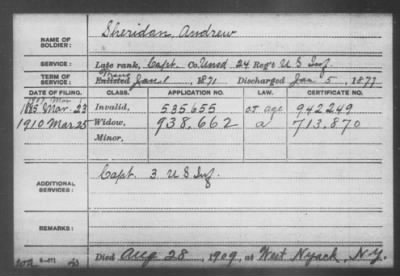 NAME OF SOLDIER: Sheridan, Andrew
SERVICE: Late rank, Capt. Co. Unasd. 24 Reg't U S Inf.
TERM OF SERVICE: Enlisted Trans Jan. 1, 1871 Discharged Jan 5, 1877
DATE OF FILING. CLASS. APPLICATION NO. LAW. CERTIFICATE NO.
1885 Mar. 23 Invalid, 535655 942249
1910 Mar 25 Widow, 938.662 a 713.870
Minor,
ADDITIONAL SERVICES: Capt 3 U S Inf.
REMARKS:
Died Aug 28, 1909, at West Nyack, N.Y.